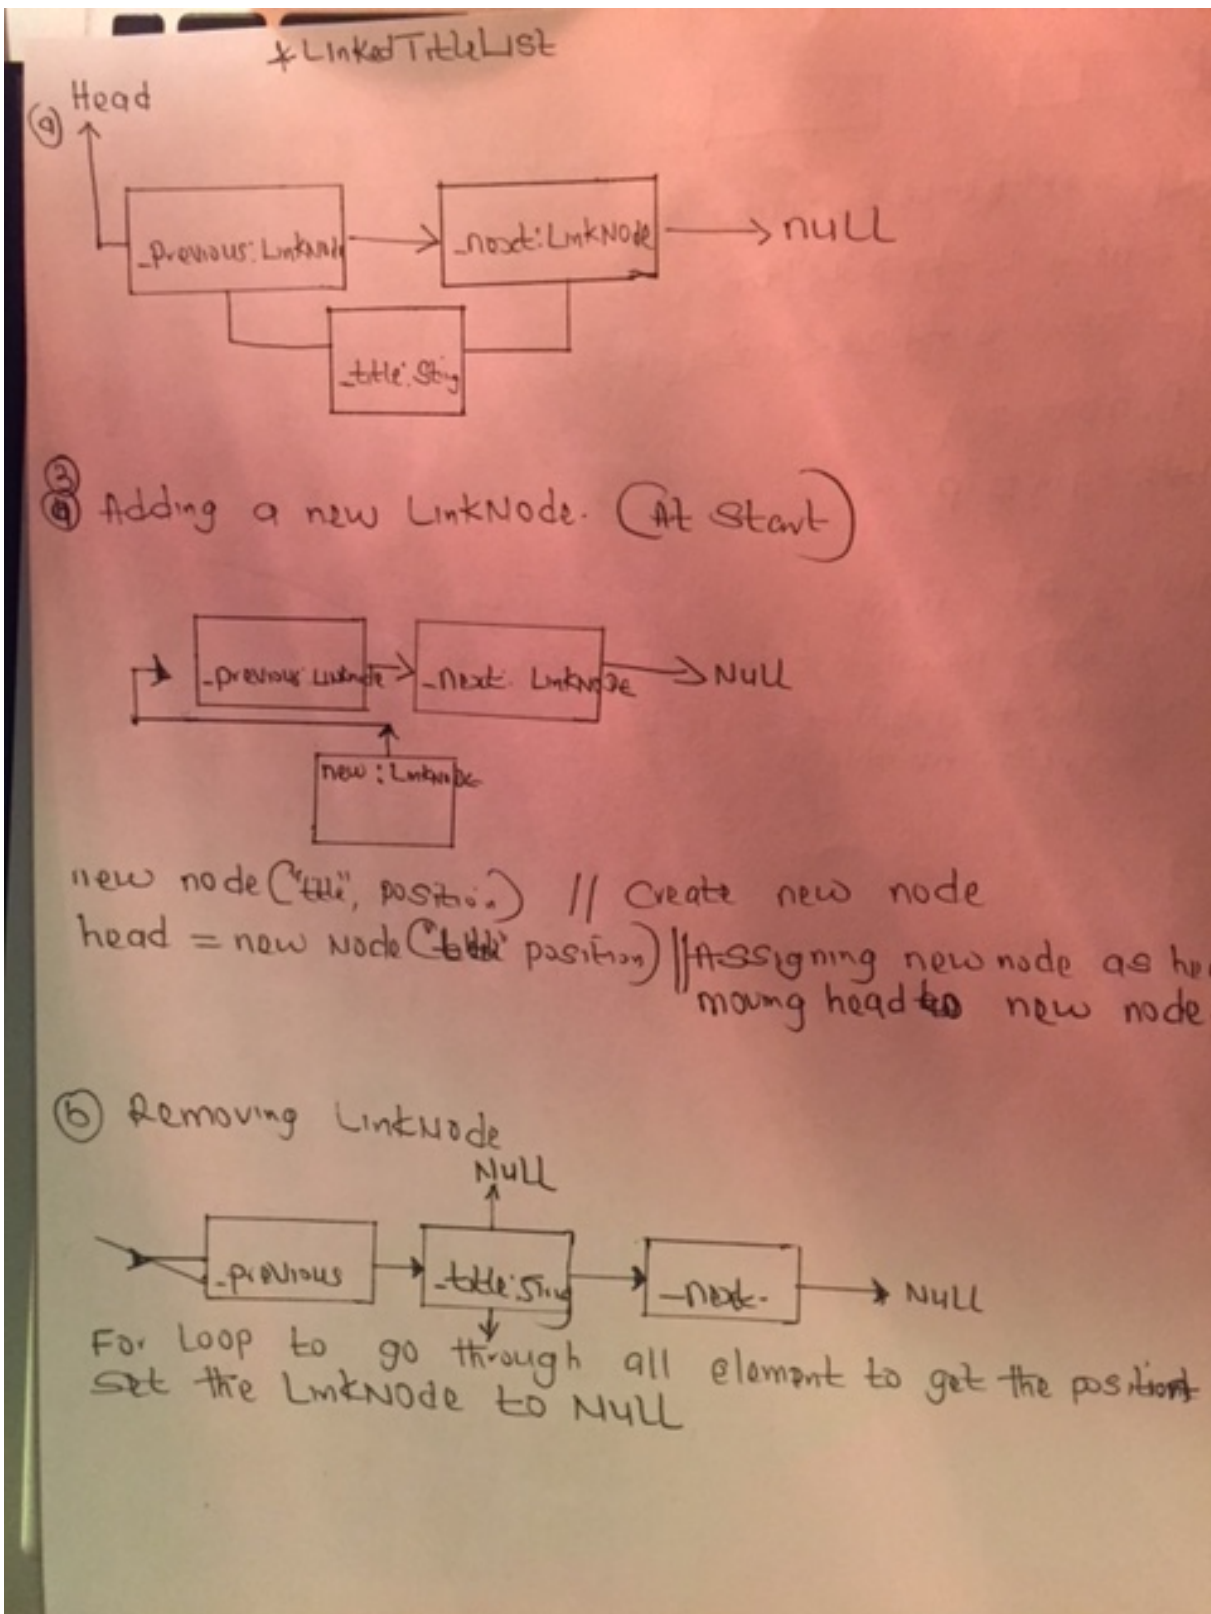 *LinkedTitleList
Head
a
_previous:LinkNode
_next:LinkNode
null
_title:String
3
a Adding a new LinkNode. (At Start)
_previous LinkNode
_next: LinkNODE
NULL
new : LinkNODE
new node("title", position) // Create new node
head = new Node("title" position) // Assigning new node as he
moving head to new node
b Removing LinkNode
NULL
_previous
_title:String
_next.
NULL
For Loop to go through all element to get the position
Set the LinkNode to NULL